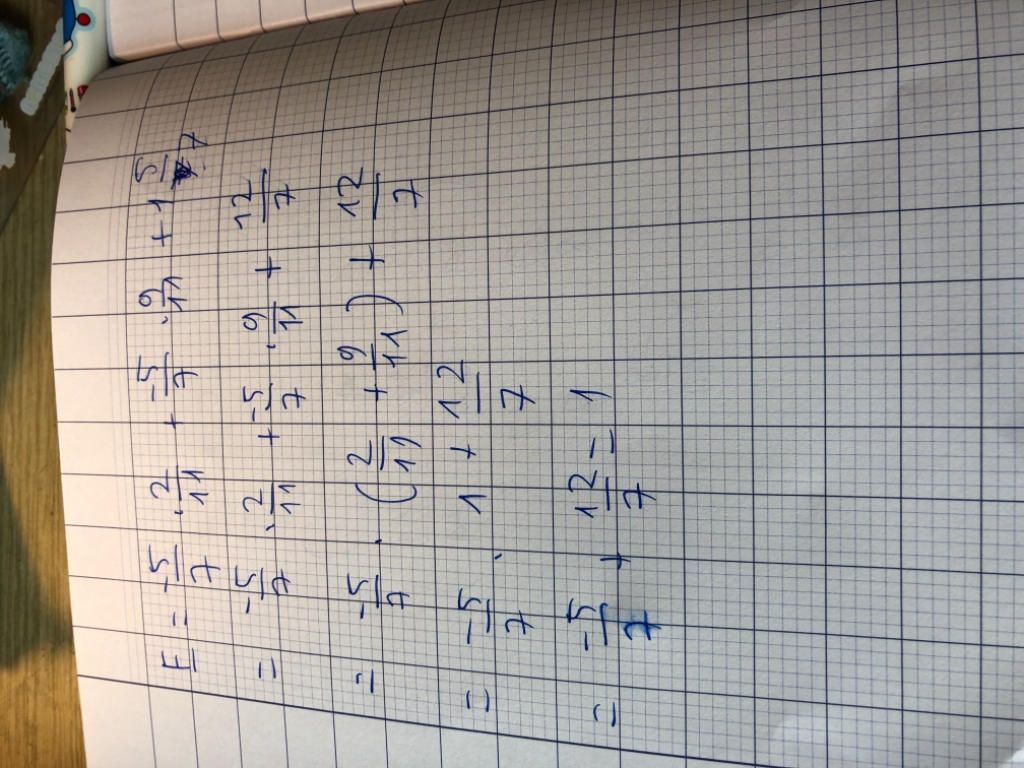 F = -5/7 . 2/11 + -5/7 . 9/11 + 1 5/7
= -5/7 . 2/11 + -5/7 . 9/11 + 12/7
= -5/7 . (2/11 + 9/11) + 12/7
= -5/7 . 1 + 12/7
= -5/7 + 12/7 = 1